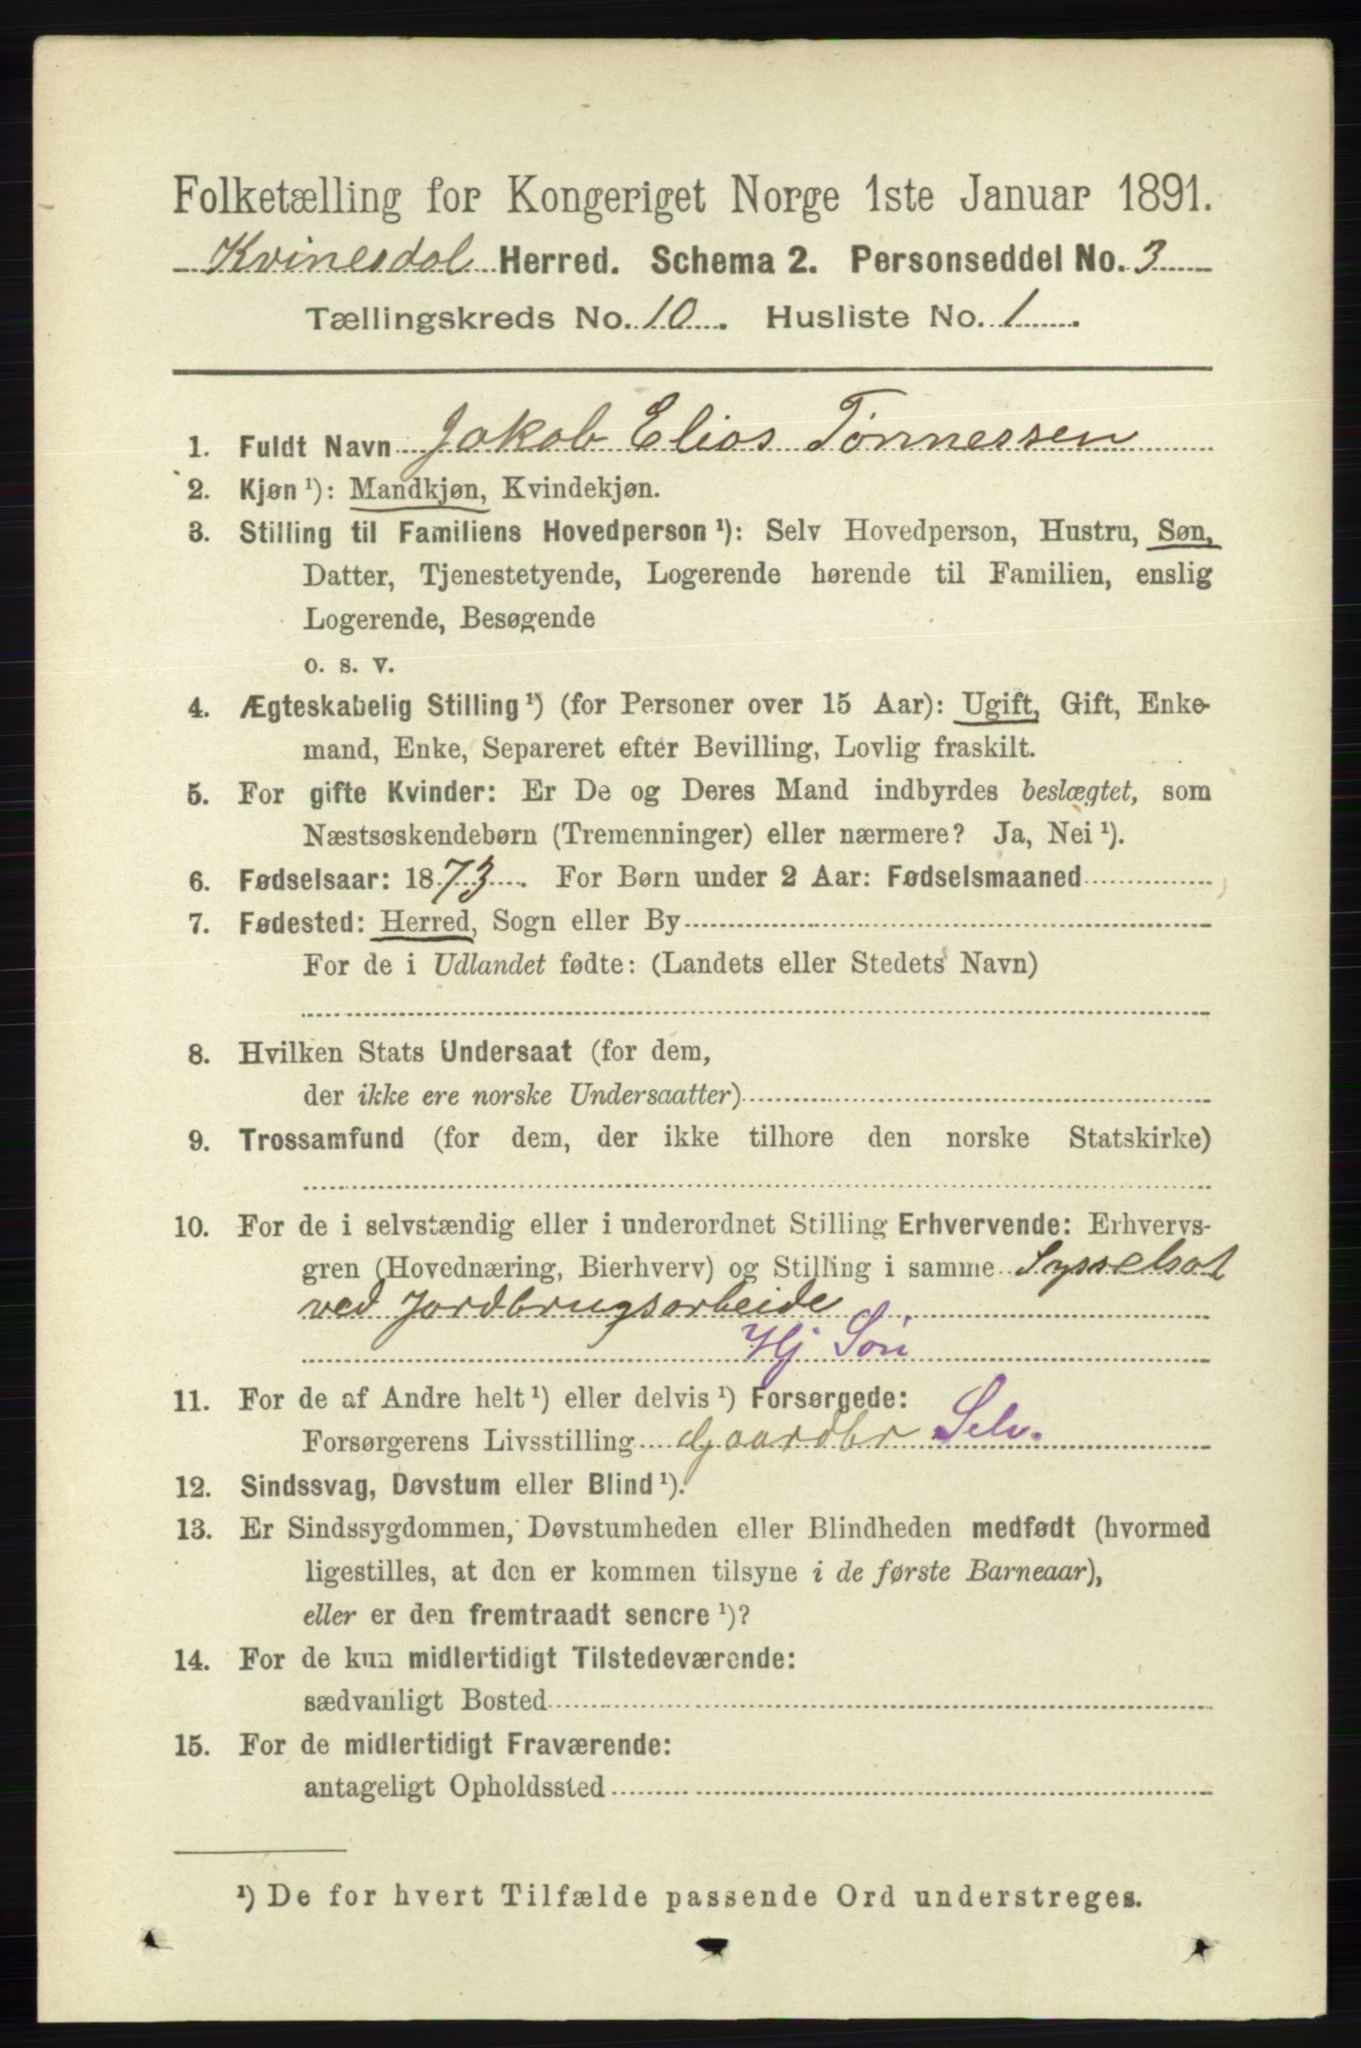 Folketælling for Kongeriget Norge 1ste Januar 1891.
Kvinesdal Herred. Schema 2. Personseddel No. 3
Tællingskreds No. 10. Husliste No. 1.
1. Fuldt Navn Jakob Elias Tønnessen
2. Kjøn ¹): Mandkjøn, Kvindekjøn.
3. Stilling til Familiens Hovedperson ¹): Selv Hovedperson, Hustru, Søn,
Datter, Tjenestetyende, Logerende hørende til Familien, enslig
Logerende, Besøgende
o. s. v.
4. Ægteskabelig Stilling ¹) (for Personer over 15 Aar): Ugift, Gift, Enke-
mand, Enke, Separeret efter Bevilling, Lovlig fraskilt.
5. For gifte Kvinder: Er De og Deres Mand indbyrdes beslægtet, som
Næstsøskendebørn (Tremenninger) eller nærmere? Ja, Nei ¹).
6. Fødselsaar: 1873. For Børn under 2 Aar: Fødselsmaaned
7. Fødested: Herred, Sogn eller By
For de i Udlandet fødte: (Landets eller Stedets Navn)
8. Hvilken Stats Undersaat (for dem,
der ikke ere norske Undersaatter)
9. Trossamfund (for dem, der ikke tilhøre den norske Statskirke)
10. For de i selvstændig eller i underordnet Stilling Erhvervende: Erhvervs-
gren (Hovednæring, Bierhverv) og Stilling i samme Sysselsat
ved Jordbrugsarbeide
Hj Søn
11. For de af Andre helt ¹) eller delvis ¹) Forsørgede:
Forsørgerens Livsstilling Gaardbr Selv.
12. Sindssvag, Døvstum eller Blind ¹).
13. Er Sindssygdommen, Døvstumheden eller Blindheden medfødt (hvormed
ligestilles, at den er kommen tilsyne i de første Barneaar),
eller er den fremtraadt senere ¹)?
14. For de kun midlertidigt Tilstedeværende:
sædvanligt Bosted
15. For de midlertidigt Fraværende:
antageligt Opholdssted
¹) De for hvert Tilfælde passende Ord understreges.